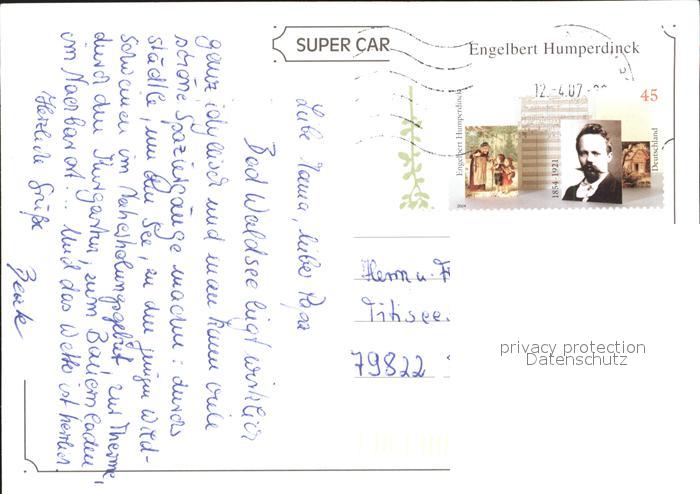 SUPER CAR
Engelbert Humperdinck
12.-4.07-
45
Engelbert Humperdinck
1854 - 1921
Deutschland
Liebe Mama, lieber Papa
Bad Waldsee liegt wirklich
ganz idyllisch und man kann viele
schöne Spaziergänge machen: durchs
Städtle, um den See, zu den jungen Wild-
schweinen im Naherholungsgebiet, zur Therme,
durch den Kurgarten, zum Bauernladen
im Nachbarort... Und das Wetter ist herrlich.
Herzliche Grüße
Beate
Herrn u. F
Titisee
79822
privacy protection
Datenschutz